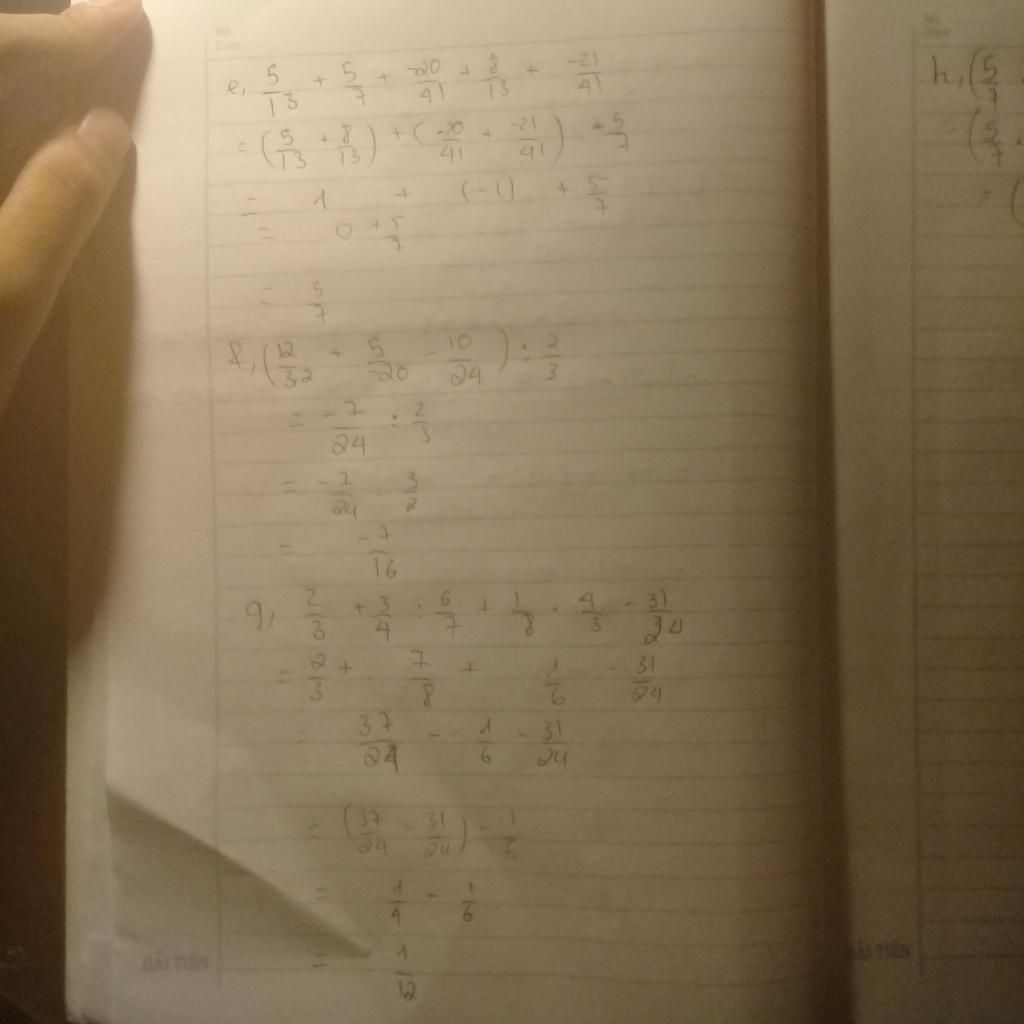 No
Date
e, 5/13 + 5/7 + -20/41 + 8/13 + -21/41
= (5/13 + 8/13) + (-20/41 + -21/41) + 5/7
= 1 + (-1) + 5/7
= 0 + 5/7
= 5/7
f, (12/32 + 5/-20 - 10/24) : 2/3
= -7/24 : 2/3
= -7/24 . 3/2
= -7/16
g, 2/3 + 3/4 : 6/7 + 1/8 . 4/3 - 31/24
= 2/3 + 7/8 + 1/6 - 31/24
= 37/24 - 1/6 - 31/24
= (37/24 - 31/24) - 1/6
= 1/4 - 1/6
= 1/12
HẢI TIẾN
No
Date
h, (5/7
= (5/7 .
= (
HẢI TIẾN